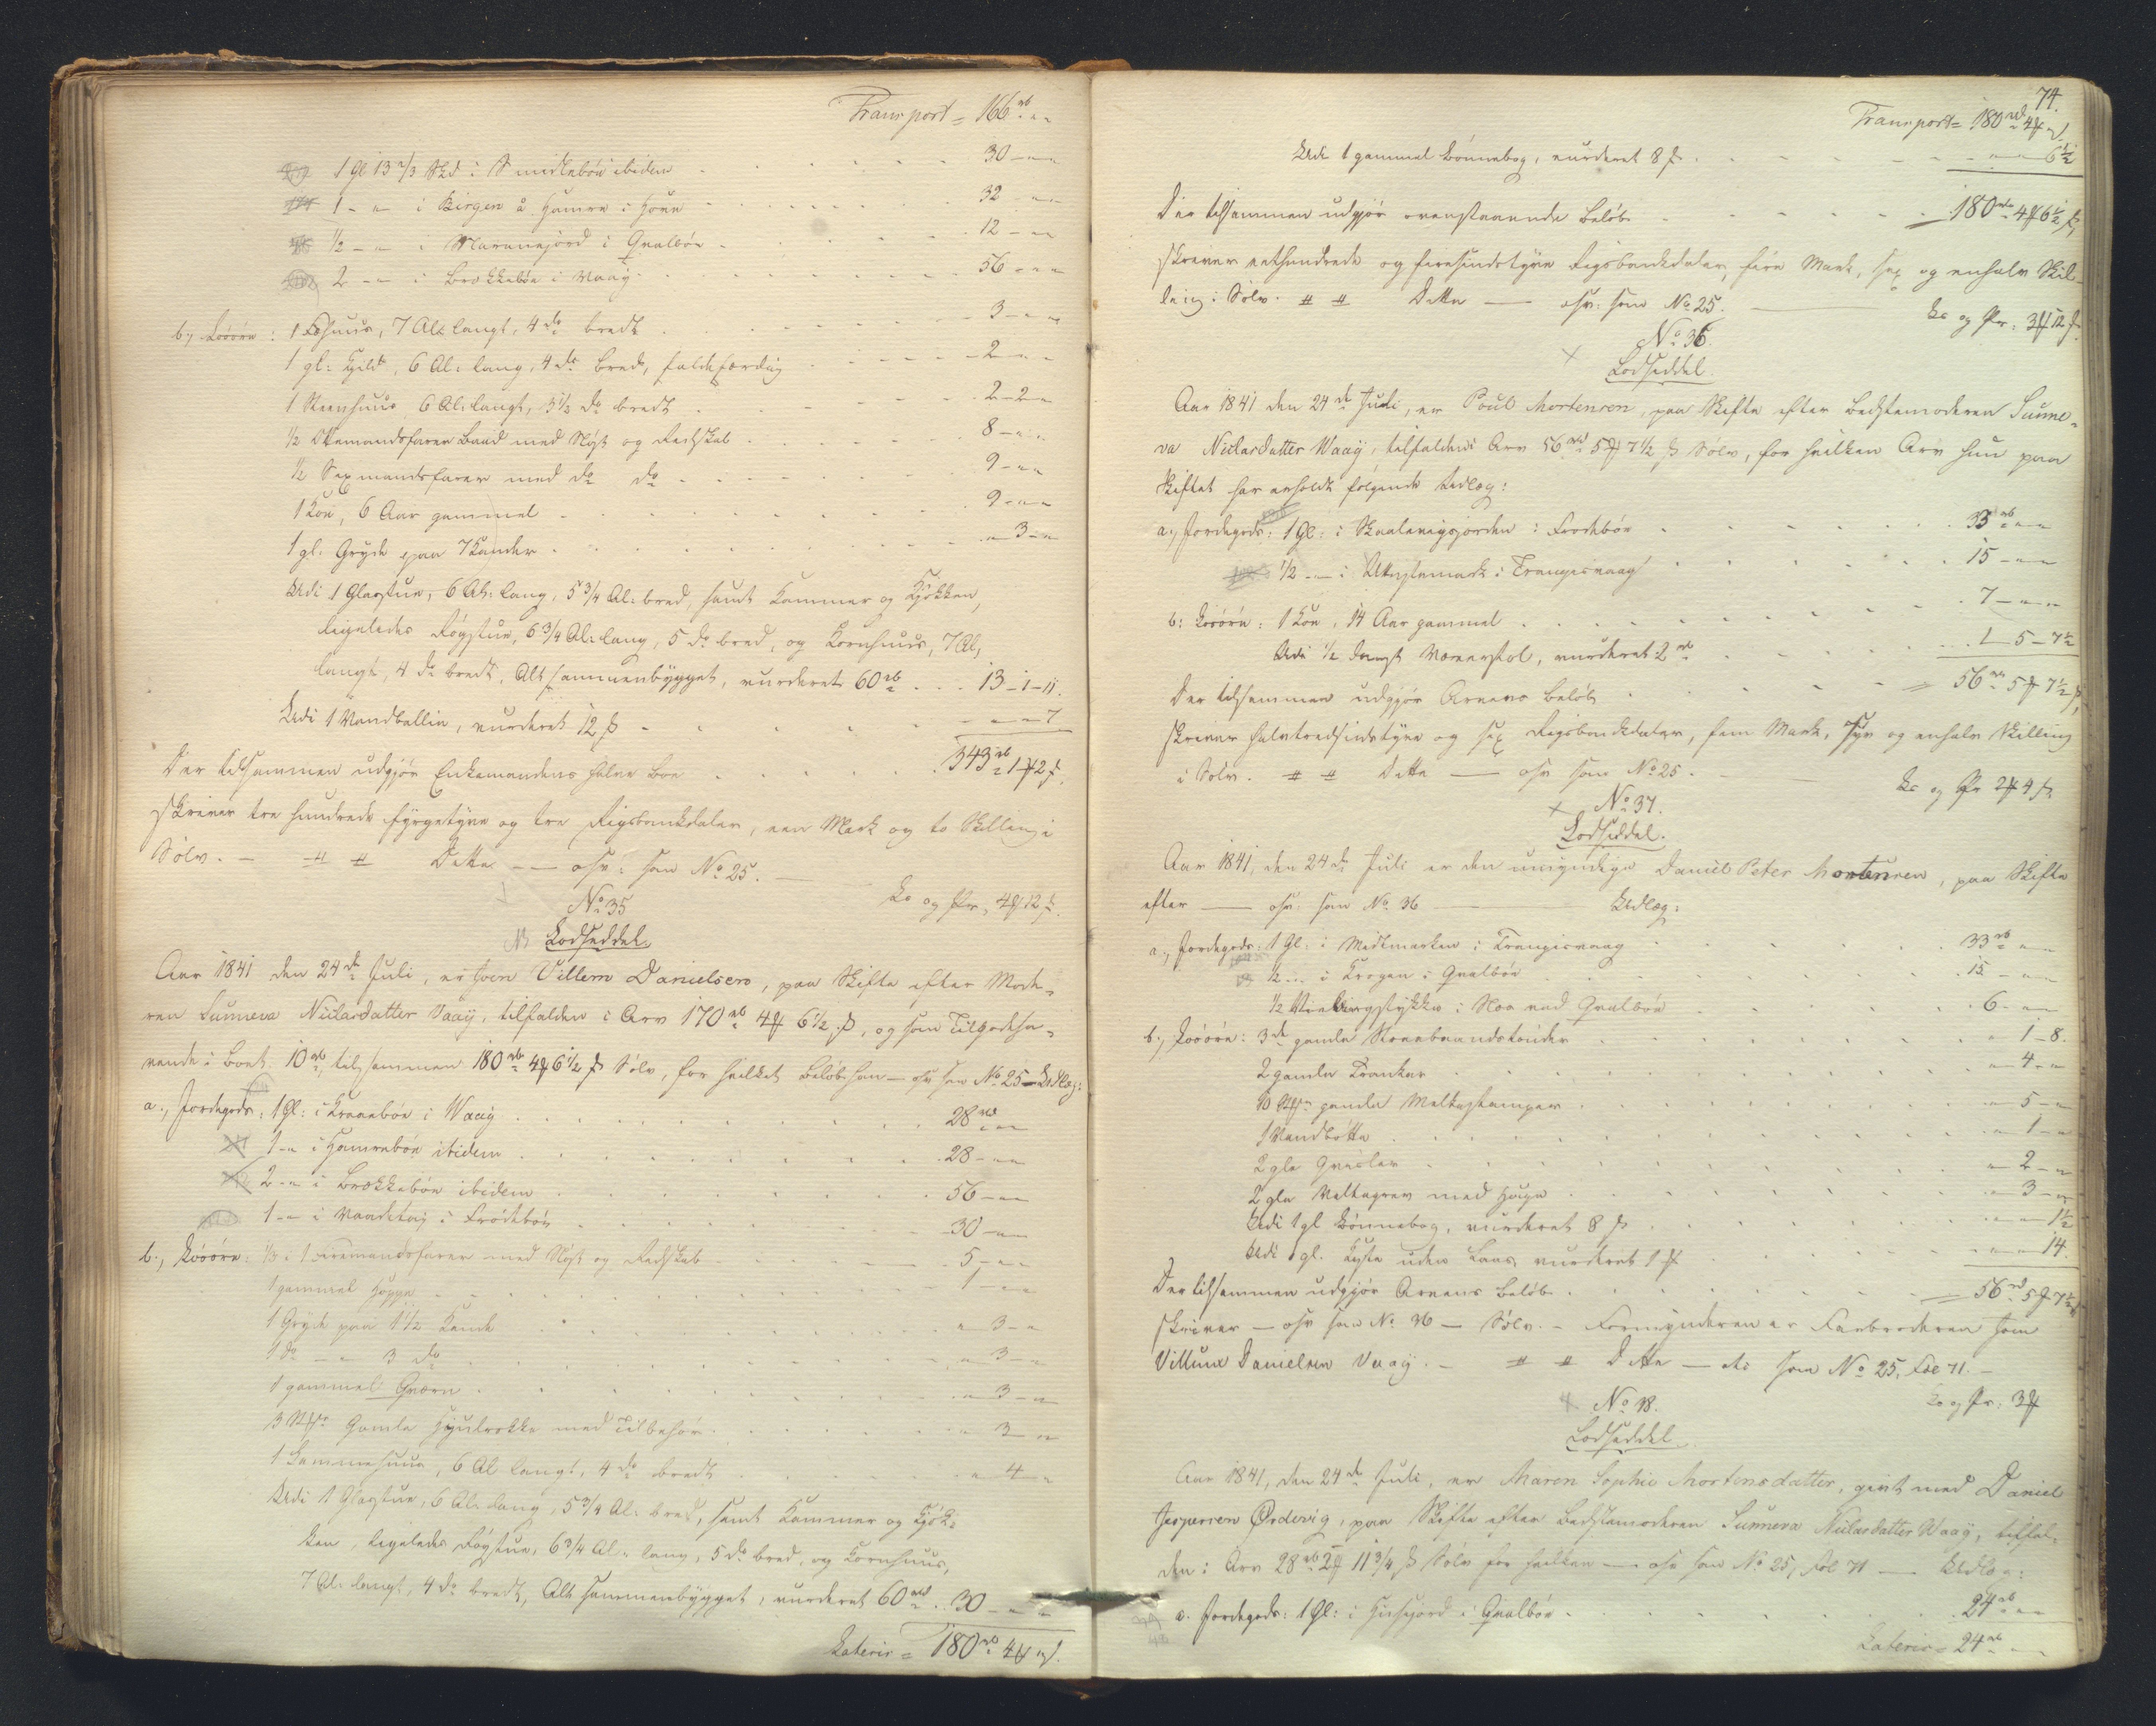 Transport = 166 rb " "
1 Gl 13 2/3 Skd i Smidlebøn ibidem . . . 30 - " "
1 - " i Birgen à Hamren i Hoen . . . 32 - " "
1/2 - " i Maranajord i Qvalbøn . . . 12 - " "
2 - " i Brekkebøn i Waaÿ . . . 56 - " "
b., Løsøre: 1 Fæhuus, 7 Al: langt, 4 do bredt . . . 3 - " "
1 gl: Hield, 6 Al: lang, 4 do bred, faldefærdig . . . 2 - " "
1 Steenhuus, 6 Al: langt, 3 1/2 do bredt . . . 2 - 2 - "
1/2 Ottemandsfarer Baad med Nøst og Redskab . . . 8 - " "
1/2 Sexmandsfarer med do do . . . 9 - " "
1 Koe, 6 Aar gammel . . . 9 - " "
1 gl: Gryde paa 7 Kander . . . " - 3 - "
Udi 1 Glasstue, 6 Al: lang, 5 3/4 Al: bred, samt Kammer og Kjøkken,
ligeledes Røgstue, 6 3/4 Al: lang, 5 do bred, og Kornhuus, 7 Al,
langt, 4 do bredt, Alt sammenbygget, vurderet 60 rb . . . 13 - 1 - 11.
Udi 1 Vandballie, vurderet 12 ß . . . " - " - 7
Der tilsammen udgjør Enkemandens halve Boe . . . 343 rb 1 # 2 ß.
skriver tre hundrede fyrgetyve og tre Rigsbankdaler, een Mark og to Skilling i
Sølv. - # # Dette - osv: som No 25. -
Ec og Pr, 4 # 12 ß.
No 35
Lodseddel.
Aar 1841 den 24de Juli, er Joen Villem Danielsen, paa Skifte efter Mode-
ren Sunneva Niclasdatter Vaaÿ, tilfalden i Arv 170 rb 4 # 6 1/2 ß, og som Tilgodeha-
vende i Boet 10 rb, tilsammen 180 rb 4 # 6 1/2 ß Sølv, for hvilket Beløb han - osv som No 25 - Udlæg:
a., Jordegods: 1 Gl: i Krænebøn i Waaÿ . . . 28 rb " "
1 - " i Hamrebøn ibidem . . . 28 - " "
2 - " i Brekkebøn ibidem . . . 56 - " "
1 - " i i Frodebøn . . . 30 - " "
b., Løsøre: 1/3 i 1 Firemandsfarer med Nøst og Redskab . . . 5 - " "
1 gammel . . . 1 - " "
1 Gryde paa 1 1/2 Kande . . . " - 3 - "
1 do - " 3 do . . . " - 3 - "
1 gammel Qværn . . . " - 3 - "
3 Stkr Gamle med Tilbehør . . . " 3 - "
1 Lammehuus, 6 Al langt, 4 do bredt . . . " 4 - "
Udi 1 Glasstue, 6 Al: lang, 5 3/4 Al: bred, samt Kammer og Kjøk-
ken, ligeledes Røgstue, 6 3/4 Al: lang, 5 do bred, og Kornhuus,
7 Al: langt, 4 do bredt, Alt sammenbygget, vurderet 60 rb . . 30 - " "
Lateris = 180 rb 4 # " ß.
74.
Transport = 180 rb 4 # " ß.
Udi 1 gammel Bønnebog, vurderet 8 ß . . . " - " 6 1/2
Der tilsammen udgjør ovenstaaende Beløb . . . = 180 rb 4 # 6 1/2 ß,
skriver eethundrede og firesindstyve Rigsbankdaler, fire Mark, sex og enhalv Skil-
ling i Sølv. # # Dette - osv: som No 25. -
Ec og Pr: 3 # 12 ß.
No 36.
Lodseddel.
Aar 1841 den 24de Juli, er Poul Mortensen, paa Skifte efter Bedstemoderen Sunne-
va Niclasdatter Waaÿ, tilfalden i Arv 56 rb 5 # 7 1/2 ß Sølv, for hvilken Arv hun paa
Skiftet har erholdt følgende Udlæg:
a., Jordegods: 1 Gl: i Skaalevigsjorden i Frodebøn . . . 33 rb " "
1/2 - " i i Trangisvaag . . . 15 - " "
b: Løsøre: 1 Koe, 14 Aar gammel . . . 7 - " "
Udi 1/2 Væverstol, vurderet 2 rb . . . 1 - 5 - 7 1/2
Der tilsammen udgjør Arvens Beløb . . . = 56 rb 5 # 7 1/2 ß,
skriver halvtredsindstyve og sex Rigsbankdaler, fem Mark, syv og enhalv Skilling
i Sølv. # # Dette - osv som No 25. -
Ec og Pr 2 # 4 ß
No 37.
Lodseddel.
Aar 1841, den 24de Juli er den umyndige Daniel Peter Mortensen, paa Skifte
efter - osv. som No 36 - Udlæg:
a., Jordegods: 1 Gl: i Midtmarken i Trangisvaag . . . 33 rb " "
1/2 ... i Krogen i Qvalbøn . . . 15 - " "
1/2 i Noe ved Qvalbøn . . . 6 - " "
b., Løsøre: 3de gamle . . . " 1 - 8.
2 gamle Trankar . . . " - 4 - "
10 Stkr gamle Meltestamper . . . " - 5 - "
1 Vandbøtte . . . " - 1 - "
2 gle . . . " - 2 - "
2 gle med . . . " - 3 - "
Udi 1 gl Bønnebog, vurderet 8 ß . . . " - " 1 1/2
Udi 1 gl. Kiste uden Laas vurderet 1 # . . . " - " 14.
Der tilsammen udgjør Arvens Beløb . . . = 56 rb 5 # 7 1/2 ß
skriver - osv som No 36 - Sølv. - Formynderen er Farbroderen Joen
Villum Danielsen Vaaÿ. - # # Dette - etc som No 25, Fol 71. -
Ec og Pr: 3 #
No 38.
Lodseddel.
Aar 1841, den 24de Juli, er Maren Sophie Mortensdatter, givt med Daniel
Jespersen Ørdevig, paa Skifte efter Bedstemoderen Sunneva Niclasdatter Waaÿ, tilfal-
den i Arv 28 rb 2 # 11 3/4 ß Sølv for hvilken - osv som No 25, Fol 71 - Udlæg:
a. Jordegods: 1 Gl: i Husejord i Qvalbøn . . . 24 rb " "
Lateris = 24 rb " "